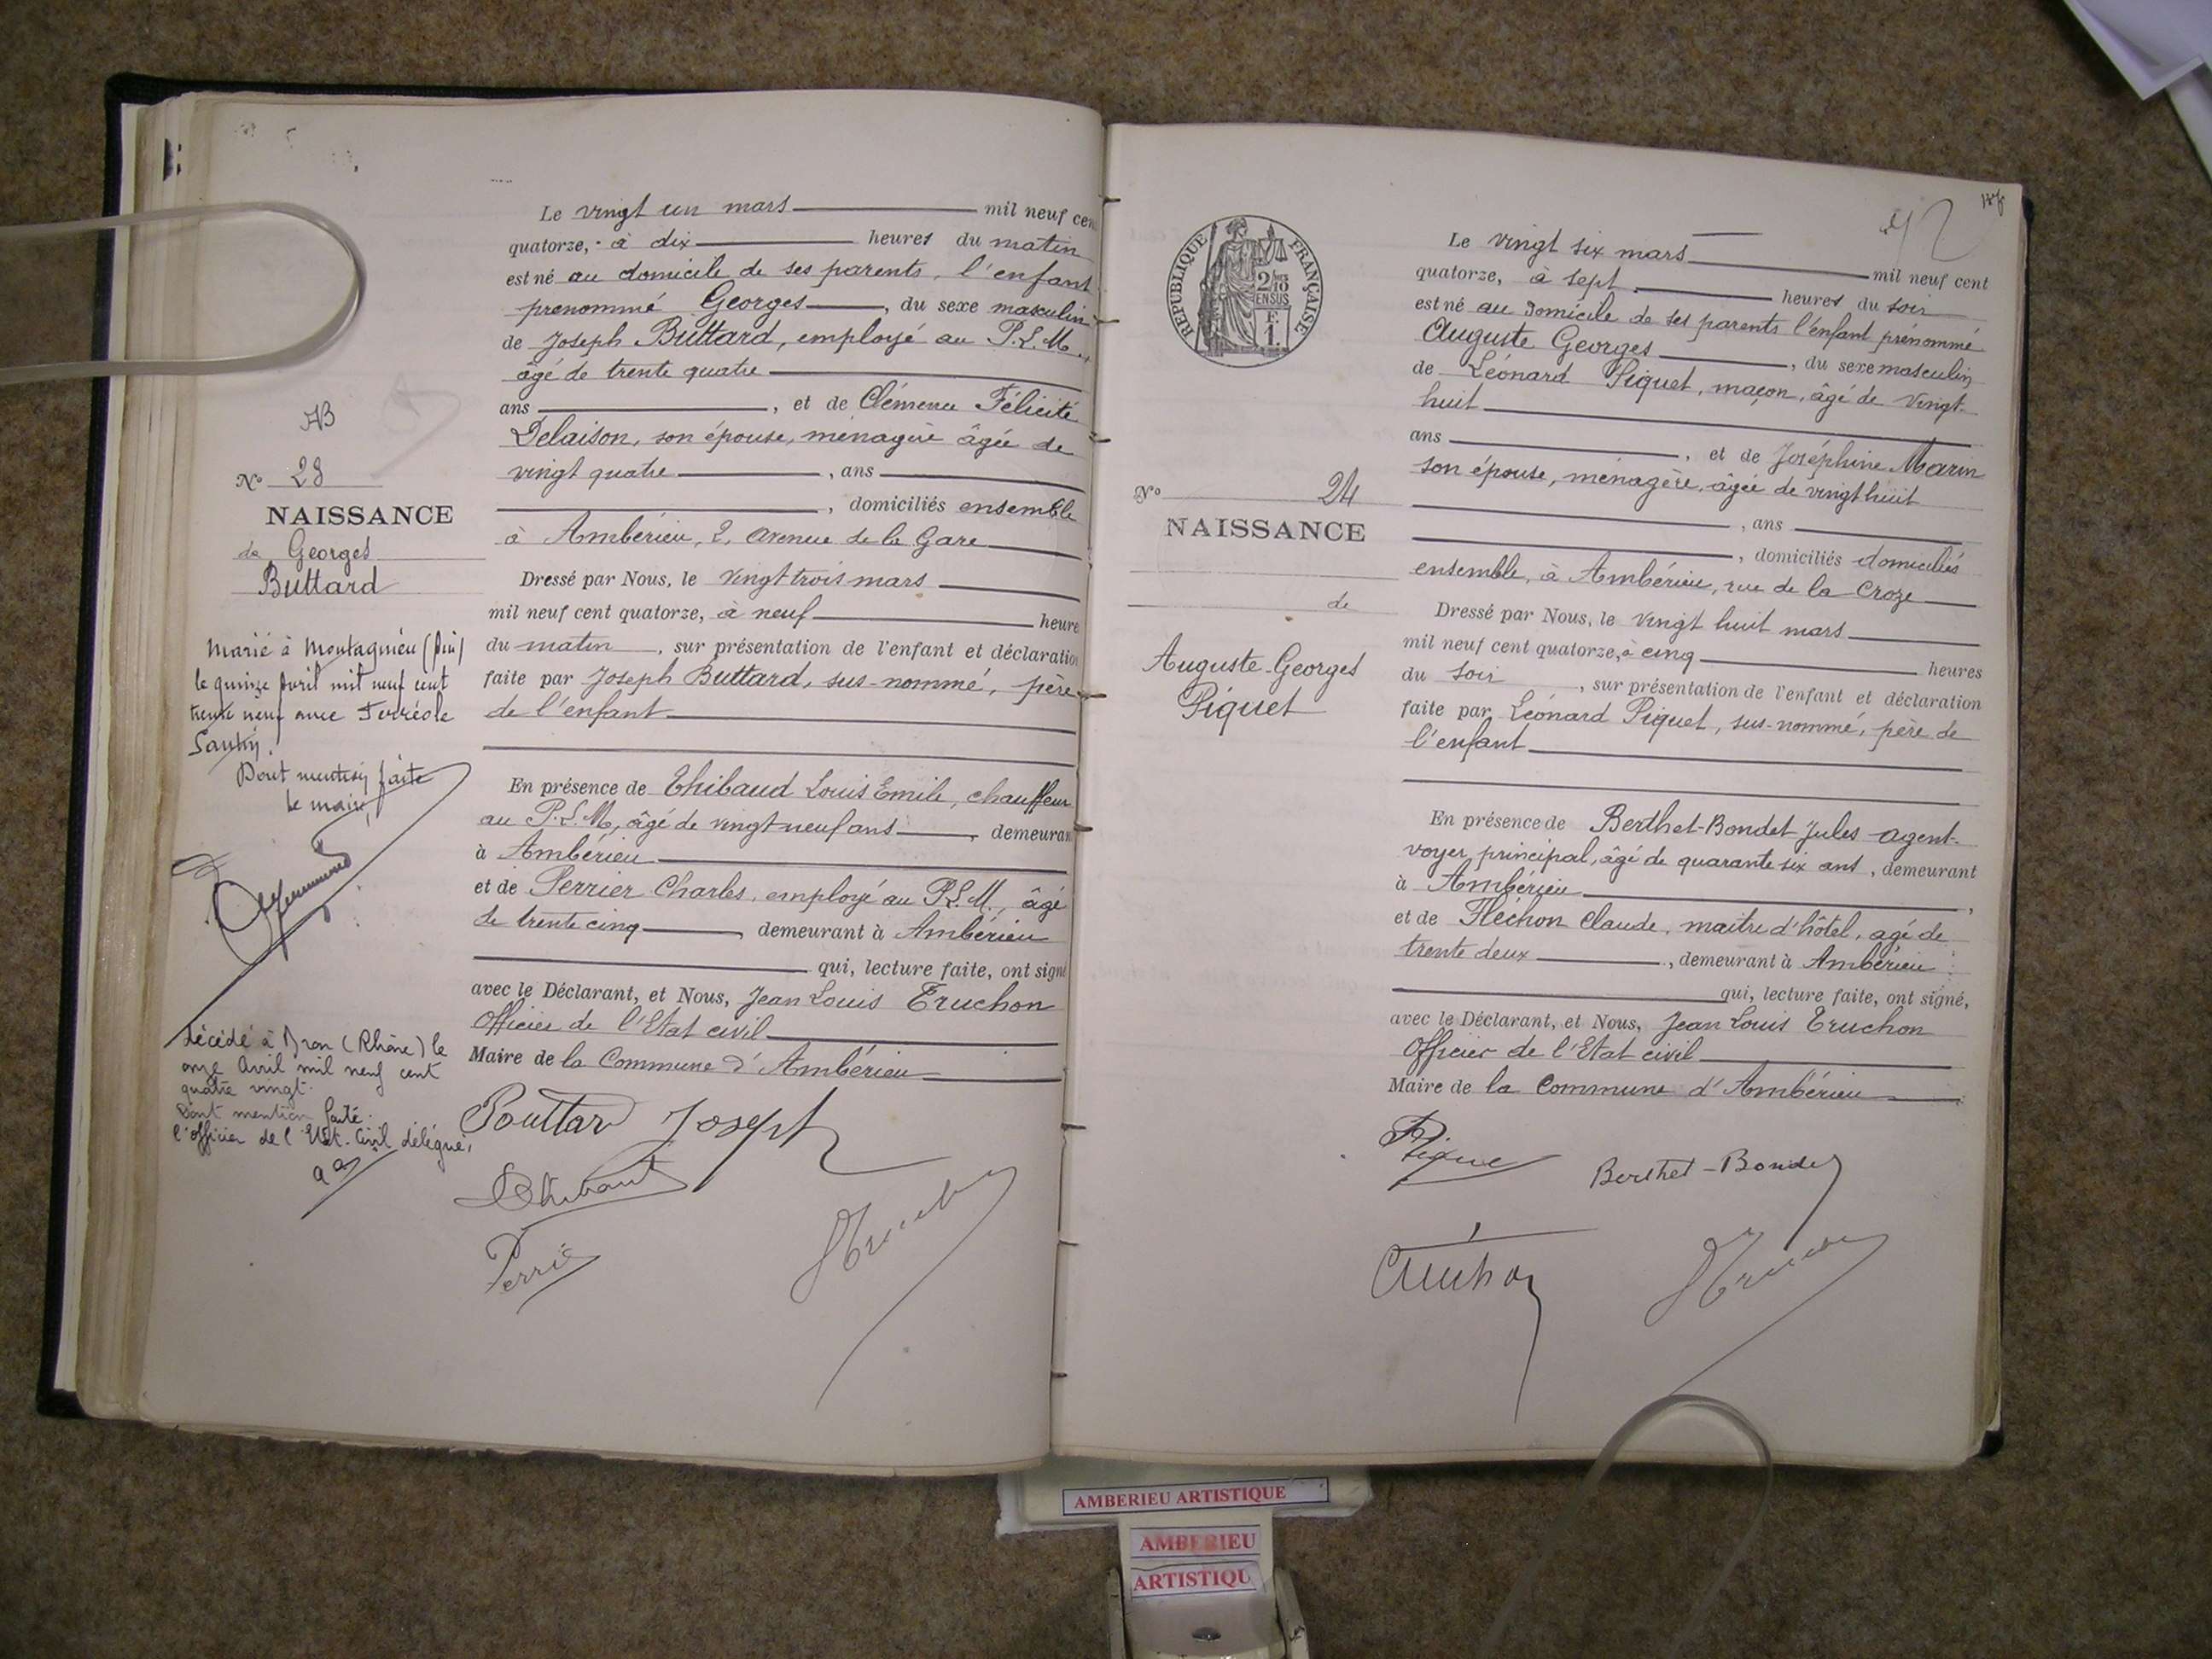 Le vingt un mars mil neuf cen
quatorze, à dix heures du matin
est né au domicile de ses parents, l'enfant
prenommé Georges, du sexe masculin
de Joseph Buttard, employé au P.L.M.
âgé de trente quatre
ans, et de Clémence Félicité
Delaison, son épouse, ménagère âgée de
vingt quatre, ans
, domiciliés ensemble
à Ambérieu, 2, avenue de la Gare
Dressé par Nous, le vingt trois mars
mil neuf cent quatorze, à neuf heure
du matin, sur présentation de l'enfant et déclaration
faite par Joseph Buttard, sus-nommé, père
de l'enfant
En présence de Thibaud Louis Emile, chauffeur
au P.L.M, âgé de vingt neuf ans, demeuran
à Ambérieu
et de Perrier Charles, employé au P.L.M., âgé
de trente cinq, demeurant à Ambérieu
qui, lecture faite, ont signé
avec le Déclarant, et Nous, Jean Louis Truchon
Officier de l'Etat civil
Maire de la Commune d'Ambérieu
Bouttar Joseph
Perrie
AB
No 23
NAISSANCE
de Georges
Buttard
Marié à Montagnieu (Ain)
le quinze Avril mil neuf cent
trente neuf avec
Dont mention faite
le maire,
décédé à Bron (Rhône) le
onze Avril mil neuf cent
quatre vingt.
Dont mention faite.
l'officier de l'Etat-Civil délégué,
RÉPUBLIQUE FRANÇAISE
2/10
EN SUS
F.
1.
Le vingt six mars mil neuf cent
quatorze, à sept heures du soir
est né au domicile de ses parents l'enfant prénommé
Auguste Georges, du sexe masculin
de Léonard Piquet, maçon, âgé de vingt-
huit
ans, et de Joséphine Marin
son épouse, ménagère, âgée de vingt huit
, ans
, domiciliés domiciliés
ensemble, à Ambérieu, rue de la Croze
Dressé par Nous, le vingt huit mars
mil neuf cent quatorze, à cinq heures
du soir, sur présentation de l'enfant et déclaration
faite par Léonard Piquet, sus-nommé, père de
l'enfant
En présence de Berthet-Bondet Jules agent-
voyer principal, âgé de quarante six ans, demeurant
à Ambérieu,
et de Fléchon Claude, maître d'hôtel, âgé de
trente deux, demeurant à Ambérieu
qui, lecture faite, ont signé,
avec le Déclarant, et Nous, Jean Louis Truchon
Officier de l'Etat civil
Maire de la Commune d'Ambérieu
Berthet-Bondet
No 24
NAISSANCE
de
Auguste-Georges
Piquet
AMBERIEU ARTISTIQUE
AMBERIEU
ARTISTIQU